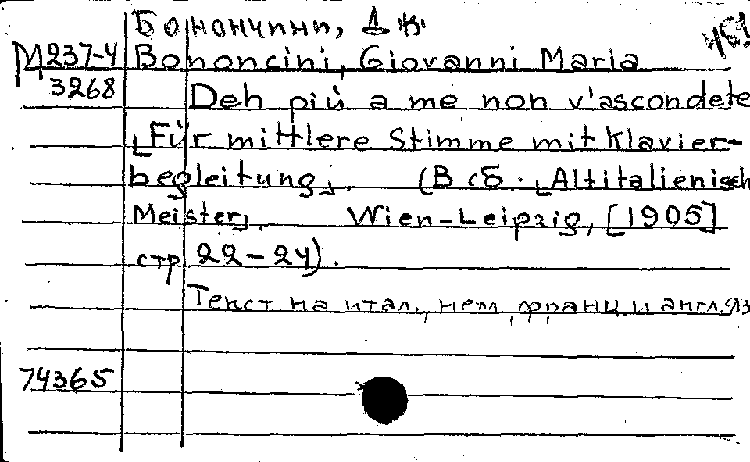 Бонончини, Дж.
М 237-4 Bononcini, Giovanni Maria
3268 Deh più a me non v'ascondete
„Für mittlere Stimme mit Klavier-
begleitung„. (В сб. „Altitalienisch
Meister„. Wien-Leipzig, [1905]
стр 22-24).
Текст на итал., нем, франц и англ яз
74365